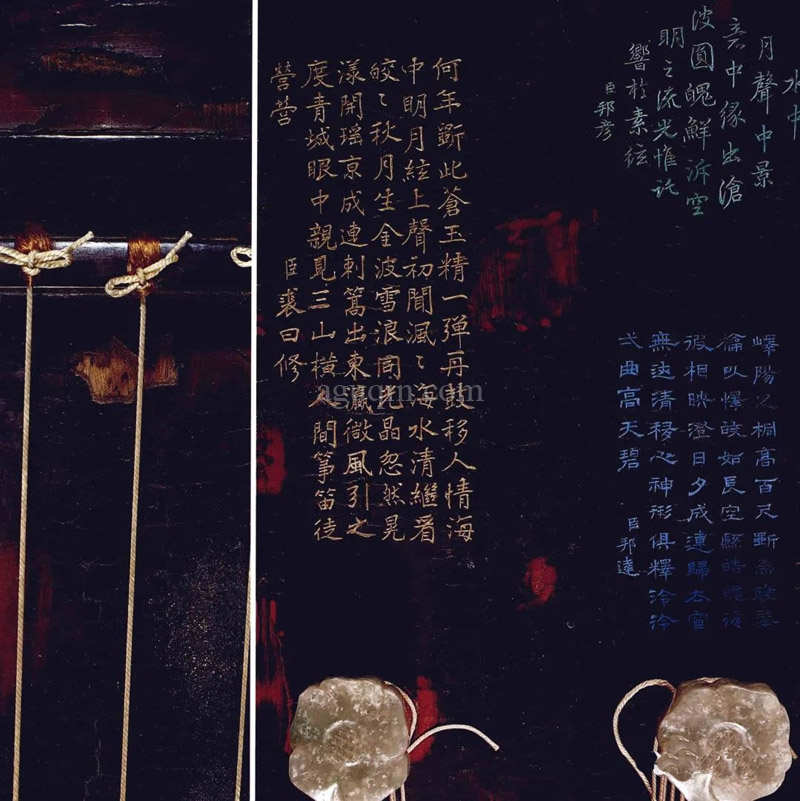 水中
月聲中景
意中緣出滄
波圓魄鮮泝空
明之流光惟託
響於素絃
臣邦彥
嶧陽之桐高百尺斲為雅琴
以懌皎如長空懸皓魄
相映澄日夕成連歸去
無遠清移心神形俱釋泠泠
弌曲高天碧
臣邦達
何年斲此蒼玉精一彈再鼓移人情海
中明月絃上聲初聞渢〻海水清繼看
皎〻秋月生金波雪浪同光晶忽然晃
漾開瑤京成連刺篙出東瀛微風引之
度青城眼中親見三山橫人間箏笛徒
營營
臣裘曰修
aguqin.com